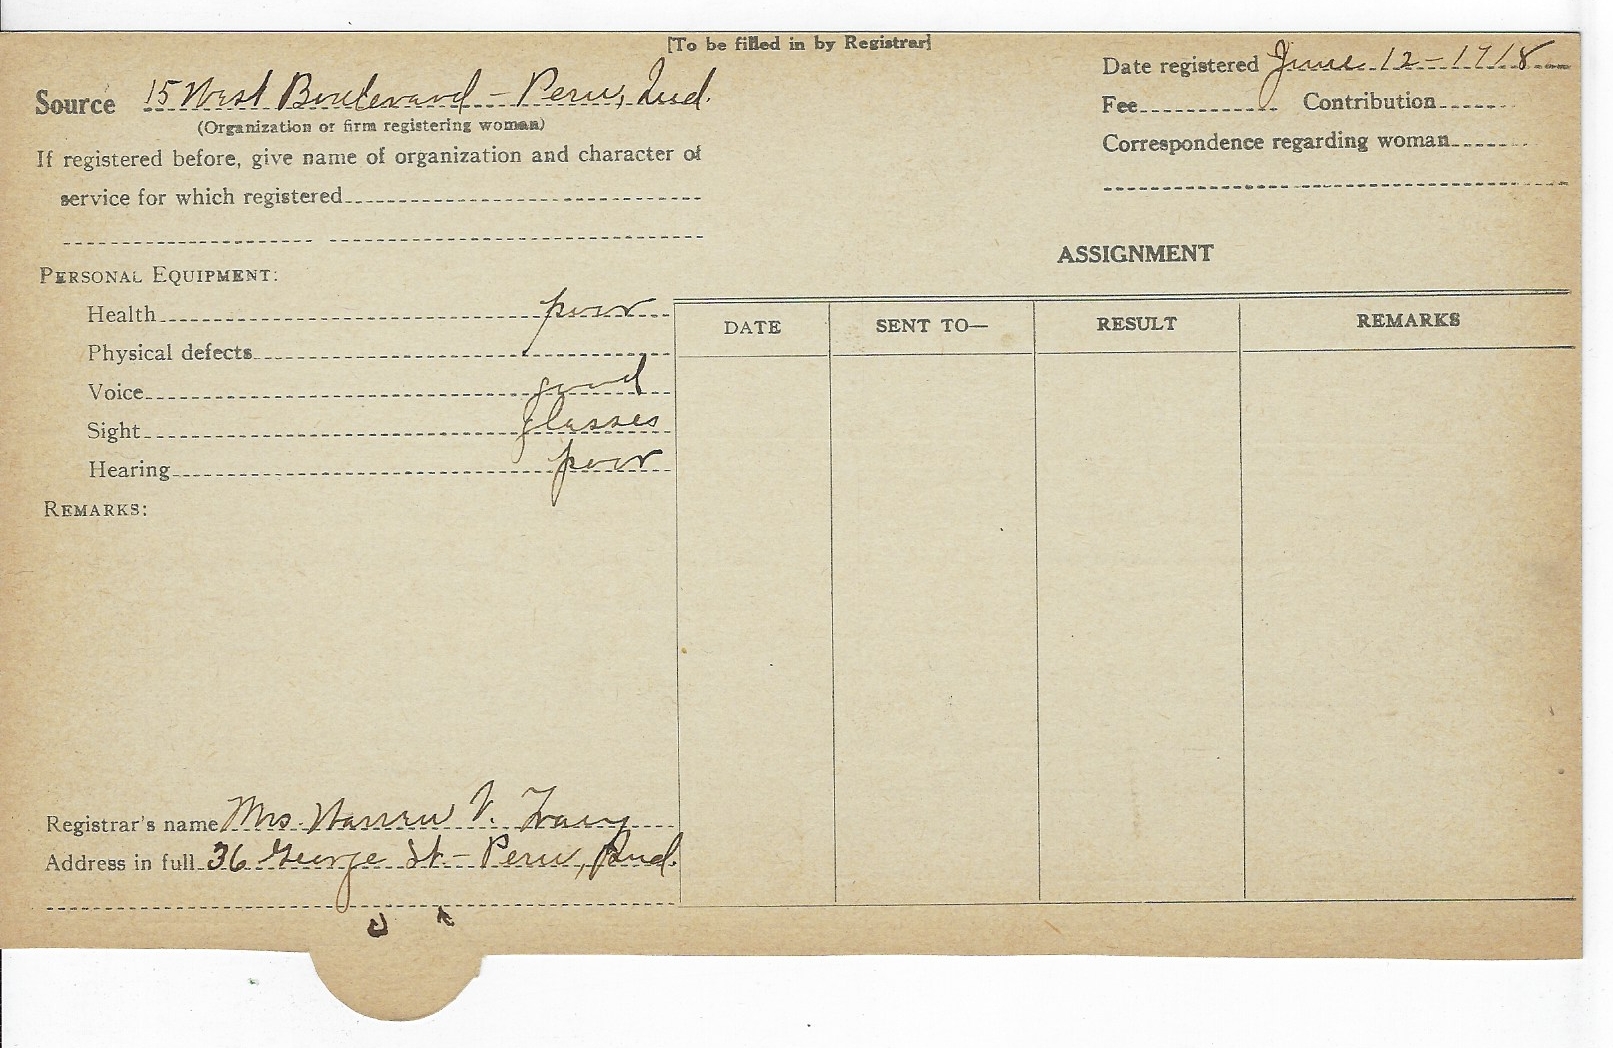 [To be filled in by Registrar]
Source 15 West Boulevard - Peru, Ind.
(Organization or firm registering woman)
If registered before, give name of organization and character of
service for which registered
Date registered June 12 - 1918
Fee Contribution
Correspondence regarding woman
PERSONAL EQUIPMENT:
Health poor
Physical defects
Voice good
Sight glasses
Hearing poor
REMARKS:
ASSIGNMENT
DATE SENT TO— RESULT REMARKS
Registrar's name Mrs. Warren V.
Address in full 36 George St - Peru, Ind.